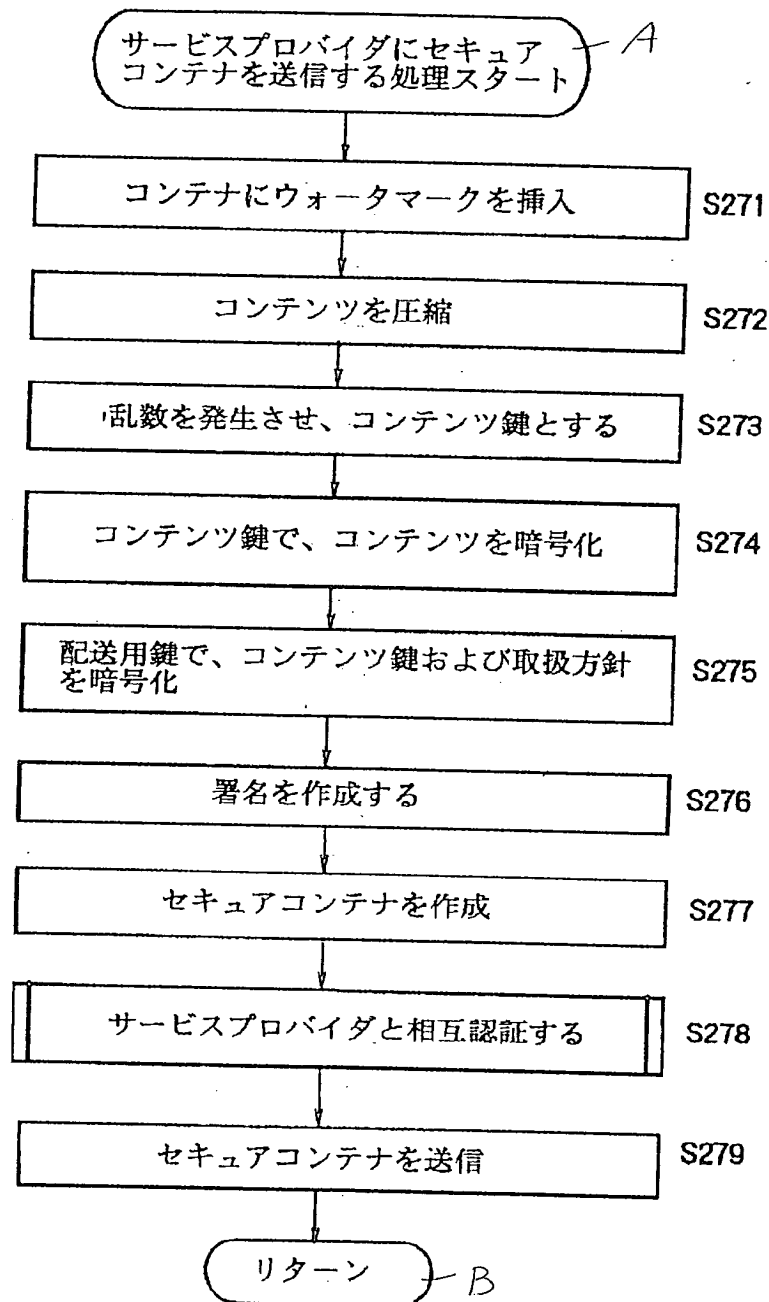 サービスプロバイダにセキュア
コンテナを送信する処理スタート
A
コンテナにウォータマークを挿入
S271
コンテンツを圧縮
S272
乱数を発生させ、コンテンツ鍵とする
S273
コンテンツ鍵で、コンテンツを暗号化
S274
配送用鍵で、コンテンツ鍵および取扱方針
を暗号化
S275
署名を作成する
S276
セキュアコンテナを作成
S277
サービスプロバイダと相互認証する
S278
セキュアコンテナを送信
S279
リターン
B